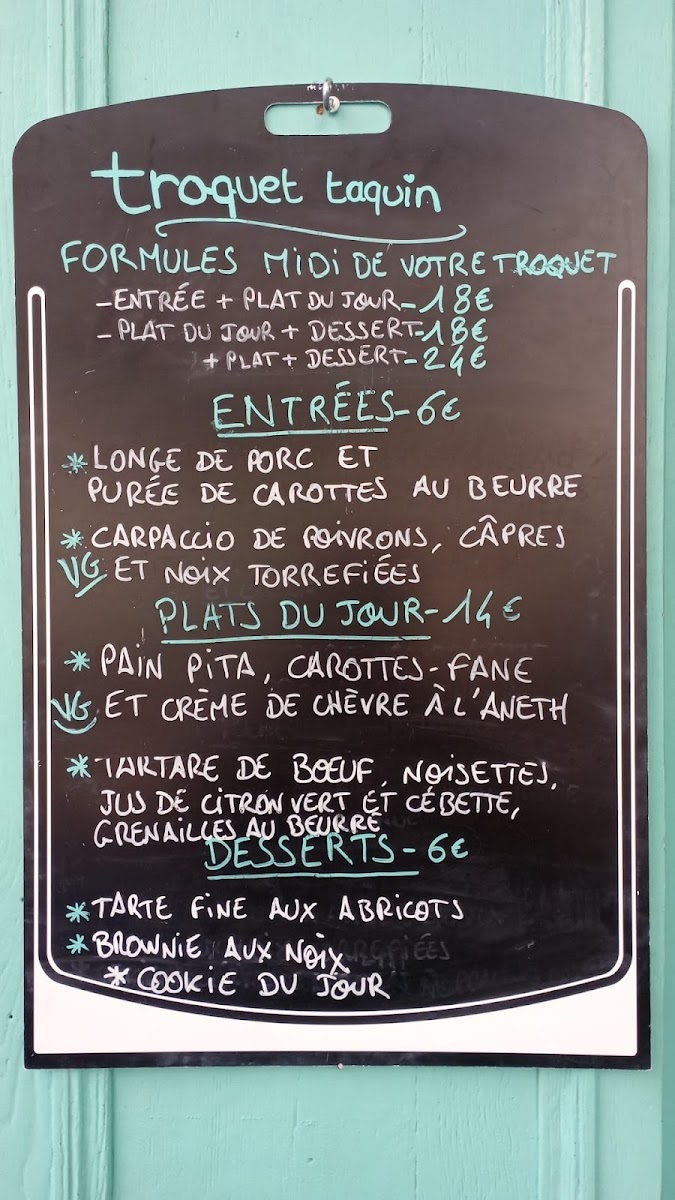 troquet taquin
FORMULES MIDI DE VOTRE TROQUET
- ENTRÉE + PLAT DU JOUR - 18€
- PLAT DU JOUR + DESSERT - 18€
+ PLAT + DESSERT - 24€
ENTRÉES - 6€
* LONGE DE PORC ET
PURÉE DE CAROTTES AU BEURRE
* CARPACCIO DE POIVRONS, CÂPRES
VG ET NOIX TORREFIÉES
PLATS DU JOUR - 14€
* PAIN PITA, CAROTTES-FANE
VG ET CRÈME DE CHÈVRE À L'ANETH
* TARTARE DE BŒUF, NOISETTES,
JUS DE CITRON VERT ET CÉBETTE,
GRENAILLES AU BEURRE
DESSERTS - 6€
* TARTE FINE AUX ABRICOTS
* BROWNIE AUX NOIX
* COOKIE DU JOUR